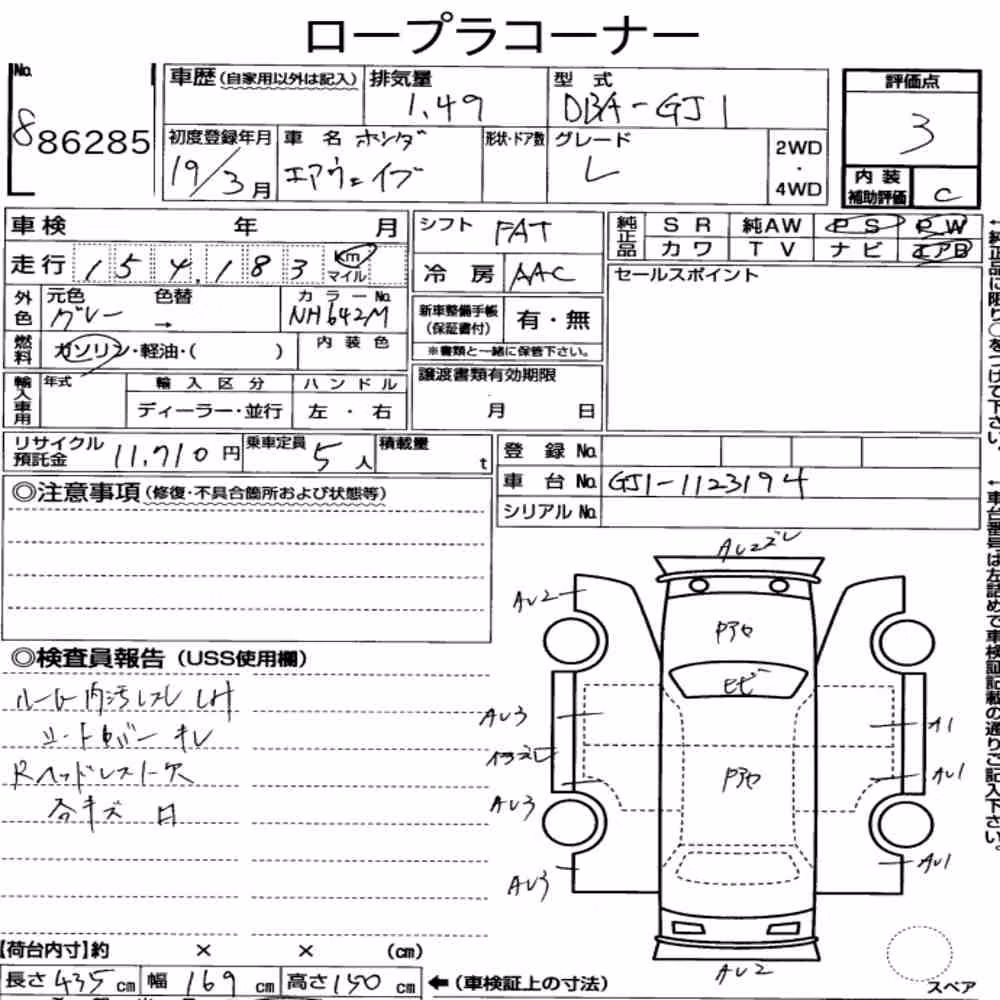 ロープラコーナー
No. 886285
車歴(自家用以外は記入) 排気量 1.49 型式 DBA-GJ1
初度登録年月 19/3月 車名 ホンダ エアウェイブ 形状・ドア数 グレード L 2WD・4WD
評価点 3
内装補助評価 C
車検 年 月
走行 154,183 km マイル
外色 元色 グレー 色替 → カラーNo. NH642M
燃料 ガソリン・軽油・( ) 内装色
輸入車用 年式 輸入区分 ディーラー・並行 ハンドル 左・右
シフト FAT
冷房 AAC
新車整備手帳(保証書付) 有・無
※書類と一緒に保管下さい。
譲渡書類有効期限 月 日
純正品 SR 純AW PS PW
カワ TV ナビ エアB
セールスポイント
←純正品に限り○をつけて下さい。
リサイクル預託金 11,710円 乗車定員 5人 積載量 t
登録No.
車台No. GJ1-1123194
シリアルNo.
←車台番号は左詰めで車検証記載の通りご記入下さい。
◎注意事項(修復・不具合箇所および状態等)
◎検査員報告(USS使用欄)
ルーム内汚レスレ LH
シートカバーキレ
Rヘッドレスト欠
各キズ 凹
AU2ズレ
AU2
Pアセ
ヒビ
AU3
A1
Pアセ
AU1
AU3
AU3
AU1
AU2
スペア
【荷台内寸】約 × × (cm)
長さ 435 cm 幅 169 cm 高さ 150 cm ←(車検証上の寸法)